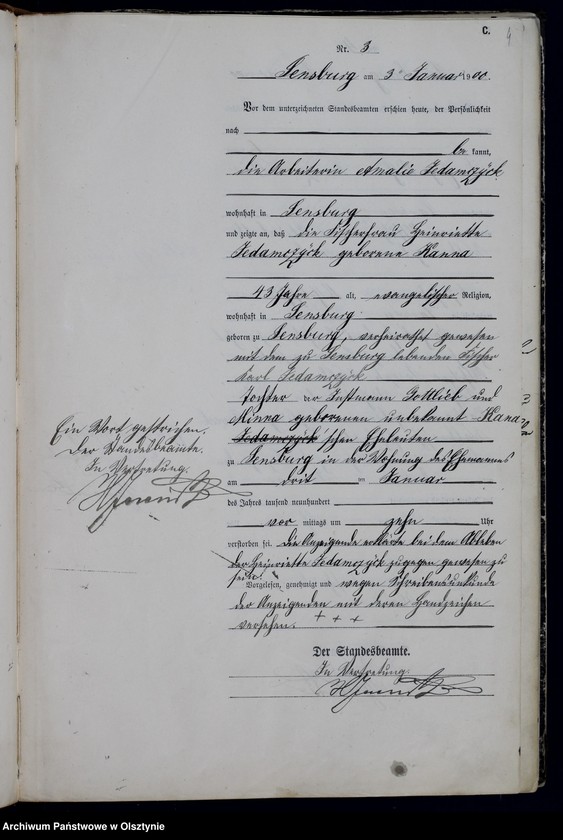 C.
4
Nr. 3
Sensburg am 3ten Januar 1900.
Vor dem unterzeichneten Standesbeamten erschien heute, der Persönlichkeit
nach
be kannt,
die Arbeiterin Amalie Jedamczyck
wohnhaft in Sensburg
und zeigte an, daß die Fischerfrau Heinriette
Jedamczyck geborene Kanna
43 Jahre alt, evangelischer Religion,
wohnhaft in Sensburg
geboren zu Sensburg, verheirathet gewesen
mit dem zu Sensburg lebenden Fischer
Karl Jedamczyck
Tochter der Instmann Gottlieb und
Minna geborenen unbekannt Kanna
Jedamczyck schen Eheleuten
zu Sensburg in der Wohnung des Ehemannes
am drit en Januar
des Jahres tausend neunhundert
vor mittags um zehn Uhr
verstorben sei. Die Anzeigende erklärte bei dem Ableben
der Heinriette Jedamczyck zugegen gewesen zu
sein.
Vorgelesen, genehmigt und wegen Schreibensunkunde
der Anzeigenden mit deren Handzeichen
versehen. + + +
Der Standesbeamte.
In Vertretung.
Ein Wort gestrichen.
Der Standesbeamte.
In Vertretung.
Archiwum Państwowe w Olsztynie